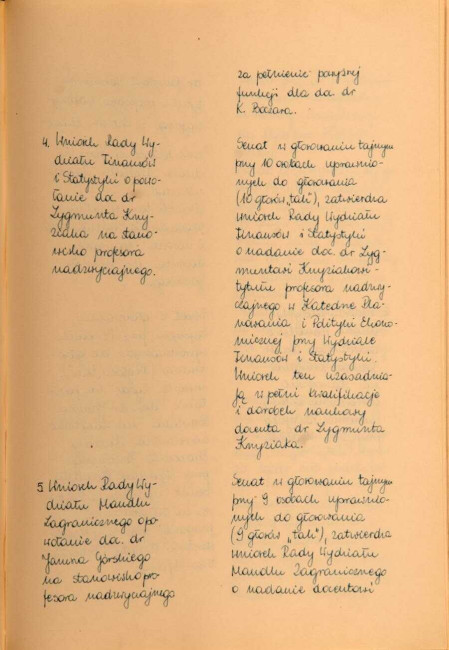 za pełnienie powyższej
funkcji dla doc. dr
K.
4. Wniosek Rady Wy-
działu Finansów
i Statystyki o powo-
łanie doc. dr
Zygmunta Kny-
ziaka na stano-
wisko profesora
nadzwyczajnego.
Senat w głosowaniu tajnym
przy 10 osobach uprawnio-
nych do głosowania
(10 głosów „tak"), zatwierdza
wniosek Rady Wydziału
Finansów i Statystyki
o nadanie doc. dr Zyg-
muntowi Knyziakowi
tytułu profesora nadzwy-
czajnego w Katedrze Pla-
nowania i Polityki Ekono-
micznej przy Wydziale
Finansów i Statystyki.
Wniosek ten uzasadnia-
ją w pełni kwalifikacje
i dorobek naukowy
docenta dr Zygmunta
Knyziaka.
5. Wniosek Rady Wy-
działu Handlu
Zagranicznego o po-
wołanie doc. dr
Janusza Górskiego
na stanowisko pro-
fesora nadzwyczajnego
Senat w głosowaniu tajnym
przy 9 osobach uprawnio-
nych do głosowania
(9 głosów „tak"), zatwierdza
wniosek Rady Wydziału
Handlu Zagranicznego
o nadanie docentowi